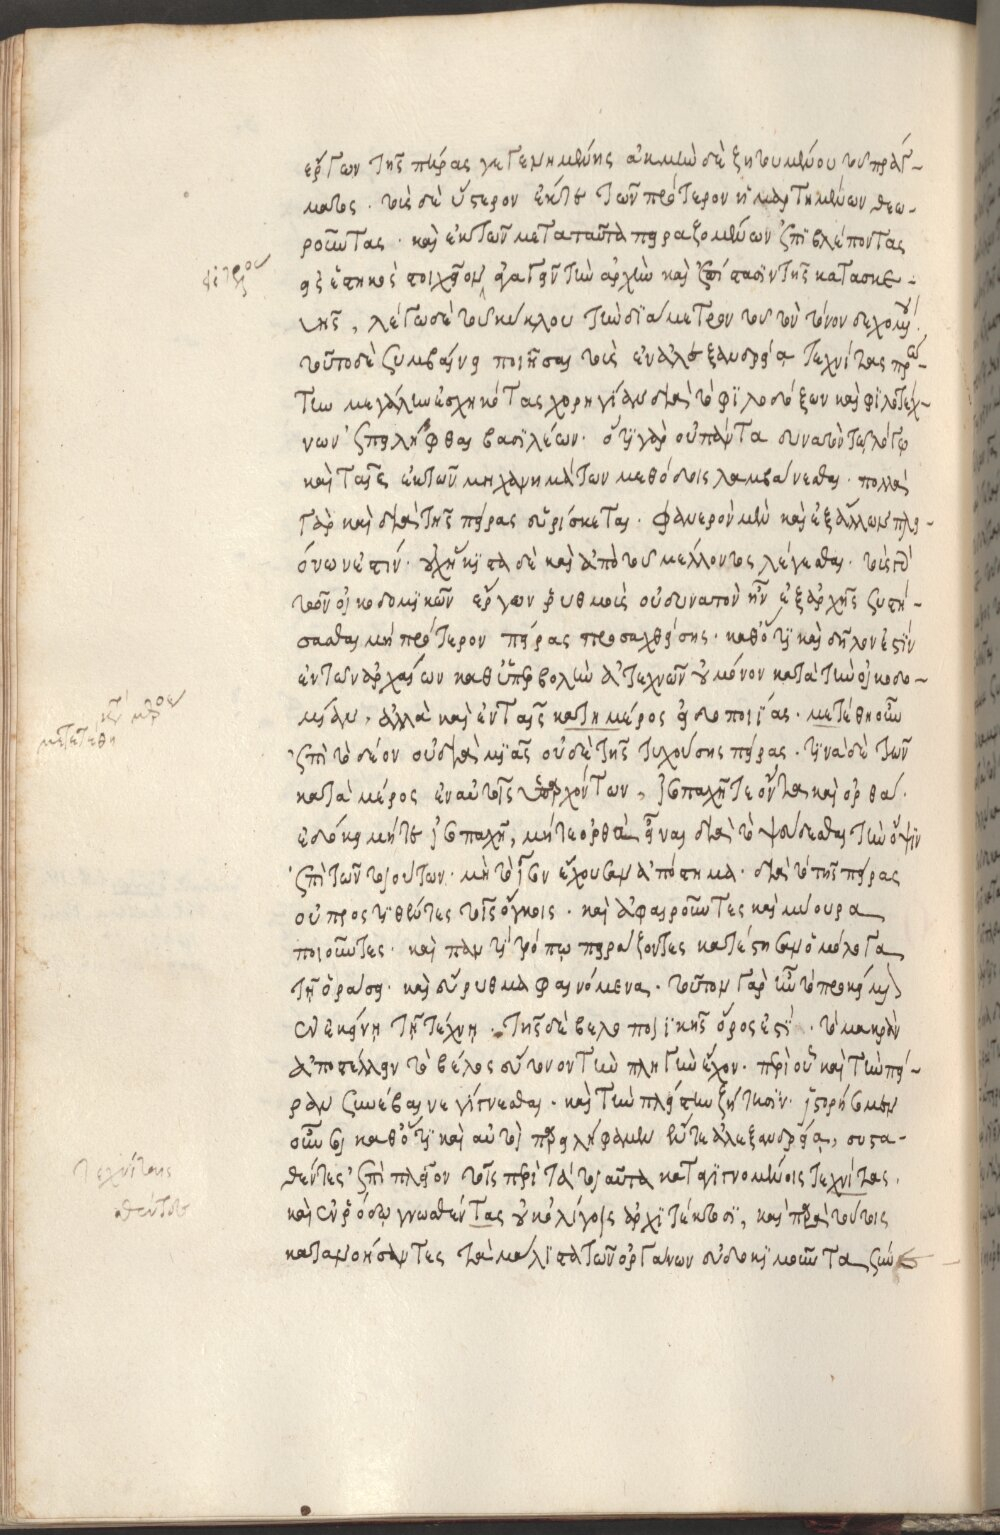 ἔργων τῆς πείρας γεγενημένης ἀκμὴν δὲ ζητουμένου τοῦ πράγ-
ματος· τοὺς δὲ ὕστερον ἔκ τε τῶν πρότερον ἡμαρτημένων θεω-
ροῦντας· καὶ ἐκ τῶν μετὰ ταῦτα πειραζομένων ἐπιβλέποντας
εἰς ἑστηκὸς στοιχεῖον ἀγαγεῖν τὴν ἀρχὴν καὶ ἐπίστασιν τῆς κατασκευ-
ῆς, λέγω δὲ τοῦ κύκλου τὴν διάμετρον τοῦ τὸν τόνον δεχομένου·
τοῦτο δὲ συμβαίνει ποιῆσαι τοὺς ἐν ἀλεξανδρείᾳ τεχνίτας πρώ-
των μεγάλην ἐσχηκότας χορηγίαν διὰ τὸ φιλοδόξων καὶ φιλοτέχ-
νων ἐπειλῆφθαι βασιλέων· ὅτι γὰρ οὐ πάντα δυνατὸν τῷ λόγῳ
καὶ ταῖς ἐκ τῶν μηχανημάτων μεθόδοις λαμβάνεσθαι· πολλὰ
γὰρ καὶ διὰ τῆς πείρας εὑρίσκεται· φανερὸν μὲν καὶ ἐξ ἄλλων πλει-
όνων ἐστίν· οὐχ ἥκιστα δὲ καὶ ἀπὸ τοῦ μέλλοντος λέγεσθαι· τοὺς γὰρ
τῶν οἰκοδομικῶν ἔργων ῥυθμοὺς οὐ δυνατὸν ἦν ἐξ ἀρχῆς συστή-
σασθαι μὴ πρότερον πείρας προσαχθείσης· καθότι καὶ δῆλον ἐστὶν
ἐκ τῶν ἀρχαίων καθ' ὑπερβολὴν ἀτέχνων οὐ μόνον κατὰ τὴν οἰκοδο-
μίαν, ἀλλὰ καὶ ἐν ταῖς κατὴ μέρος εἰδοποιΐας· μετέθη οὖν
ἐπὶ τὸ δέον οὐ διὰ μιᾶς οὐδὲ τῆς τυχούσης πείρας· τινὰ δὲ τῶν
κατὰ μέρος ἐν αὐτοῖς ὑπαρχόντων, ἰσοπαχῆ τε ὄντα καὶ ὀρθά·
ἐδόκει μήτε ἰσοπαχῆ, μήτε ὀρθὰ εἶναι διὰ τὸ ψεύδεσθαι τὴν ὄψιν
ἐπὶ τῶν τοιούτων· μὴ τὸ ἴσον ἔχουσαν ἀπόστημα· διὰ τὸ τῆς πείρας
οὐ προστιθέντες τοῖς ὄγκοις· καὶ ἀφαιροῦντες καὶ μύουρα
ποιοῦντες· καὶ παντὶ τρόπῳ πειράζοντες κατέστησαν ὁμόλογα
τῇ ὁράσει· καὶ εὔρυθμα φαινόμενα· τοῦτο μὲν γὰρ ἦν τὸ προκείμενον
ἐν ἐκείνῃ τῇ τέχνῃ· τῆς δὲ βελοποιϊκῆς ὅρος ἐστί· τὸ μακρὰν
ἀποστέλλειν τὸ βέλος εὔτονον τὴν πληγὴν ἔχον· περὶ οὗ καὶ τὴν πεῖ-
ραν συνέβαινε γίγνεσθαι· καὶ τὴν πλείστην ζήτησιν· ἱστορήσομεν
οὖν σοι καθότι καὶ αὐτοὶ παρειλήφαμεν ἔν τε ἀλεξανδρείᾳ, συστα-
θέντες ἐπὶ πλεῖον τοῖς περὶ τὰ τοιαῦτα καταγιγνομένοις τεχνίτας,
καὶ ἐν ῥόδῳ γνωσθέντας οὐκ ὀλίγοις ἀρχιτέκτοσι, καὶ παρὰ τούτοις
κατανοήσαντες τὰ μάλιστα τῶν ὀργάνων εὐδοκιμοῦντα σύν-
τεχνίταις